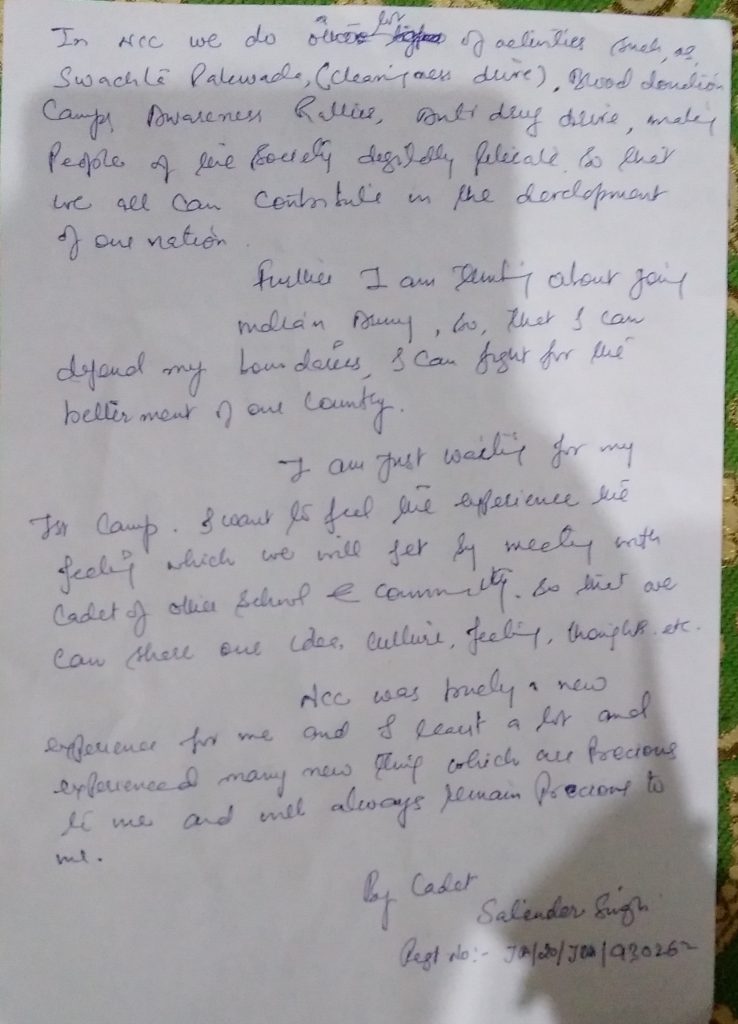 In NCC we do a lot of activities such as
Swachta Pakwada, (cleanigness drive), Blood donation
Camps Awareness Rallies, Anti drug drive, making
People of the Society degitally leticate So that
we all can Contribute in the development
of our nation.
Further I am thinking about going
indian Army, So, that I can
defend my boundaries, I can fight for the
betterment of our Country.
I am just waiting for my
Ist Camp. I want to feel the experience the
feeling which we will get by meeting with
Cadet of other School & Community. So that we
can share our idea, culture, feeling, thoughts. etc.
NCC was truely a new
experience for me and I learnt a lot and
experienced many new thing which are Precious
to me and will always remain Precious to
me.
By Cadet
Salender Singh
Regt No:- JK/20/JDA/930262